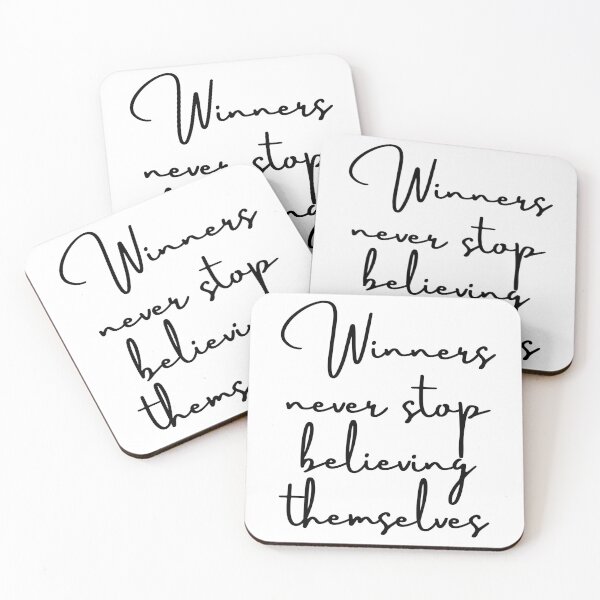 Winners
never stop
Winners
never stop
believing
Winners
never stop
believi
thems
Winners
never stop
believing
themselves